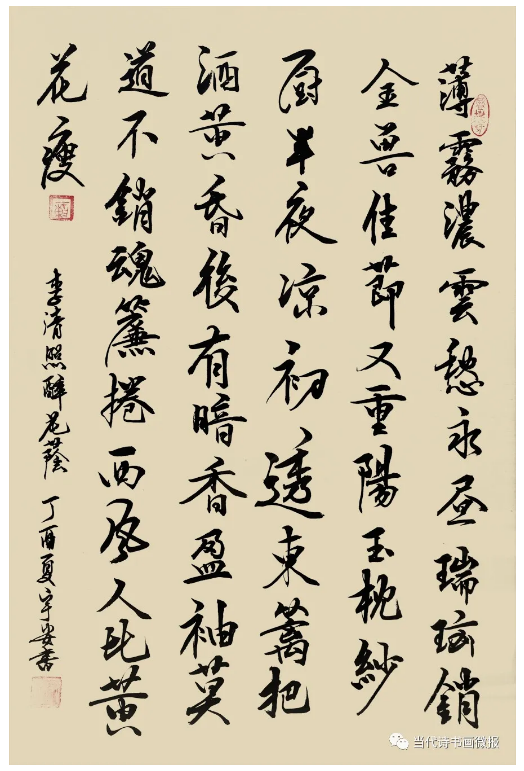 薄霧濃雲愁永昼瑞腦銷
金兽佳節又重陽玉枕紗
厨半夜凉初透東篱把
酒黄昏後有暗香盈袖莫
道不銷魂簾捲西風人比黄
花瘦
李清照醉花蔭 丁酉夏宇安書
当代诗书画微报